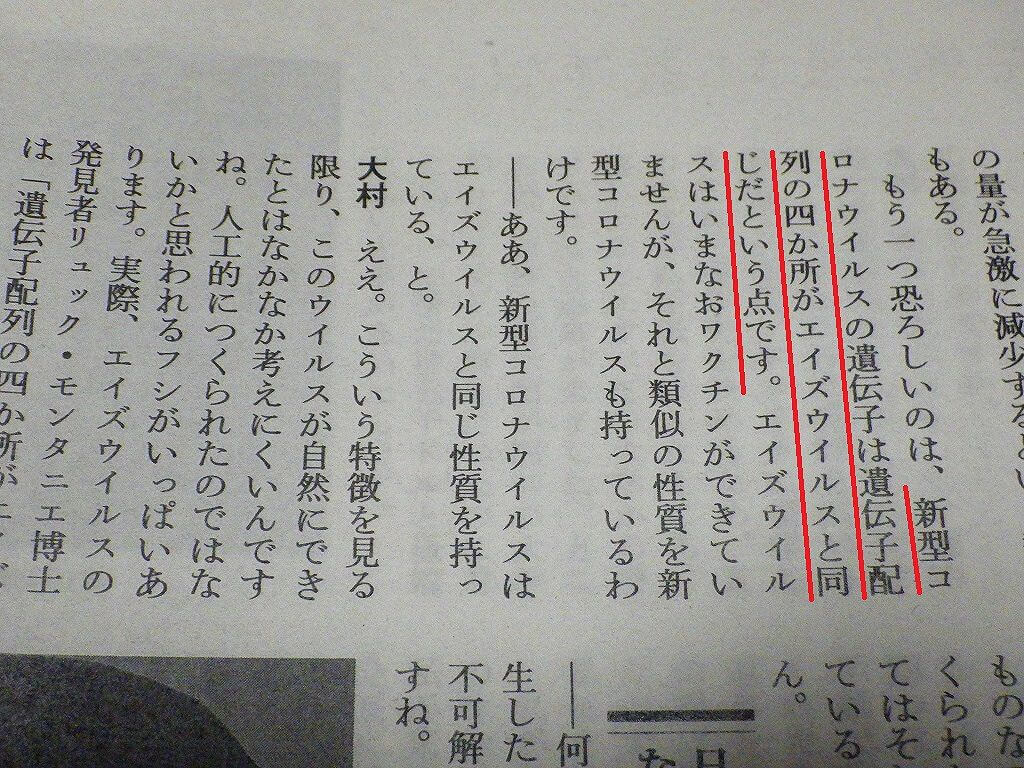 の量が急激に減少するとい
もある。
もう一つ恐ろしいのは、新型コ
ロナウイルスの遺伝子は遺伝子配
列の四か所がエイズウイルスと同
じだという点です。エイズウイル
スはいまなおワクチンができてい
ませんが、それと類似の性質を新
型コロナウイルスも持っているわ
けです。
――ああ、新型コロナウイルスは
エイズウイルスと同じ性質を持っ
ている、と。
大村 ええ。こういう特徴を見る
限り、このウイルスが自然にでき
たとはなかなか考えにくいんです
ね。人工的につくられたのではな
いかと思われるフシがいっぱいあ
ります。実際、エイズウイルスの
発見者リュック・モンタニエ博士
は「遺伝子配列の四か所がエイズ
ものな
くられ
てはそ
ている
ん。
――何
生した
不可解
すね。